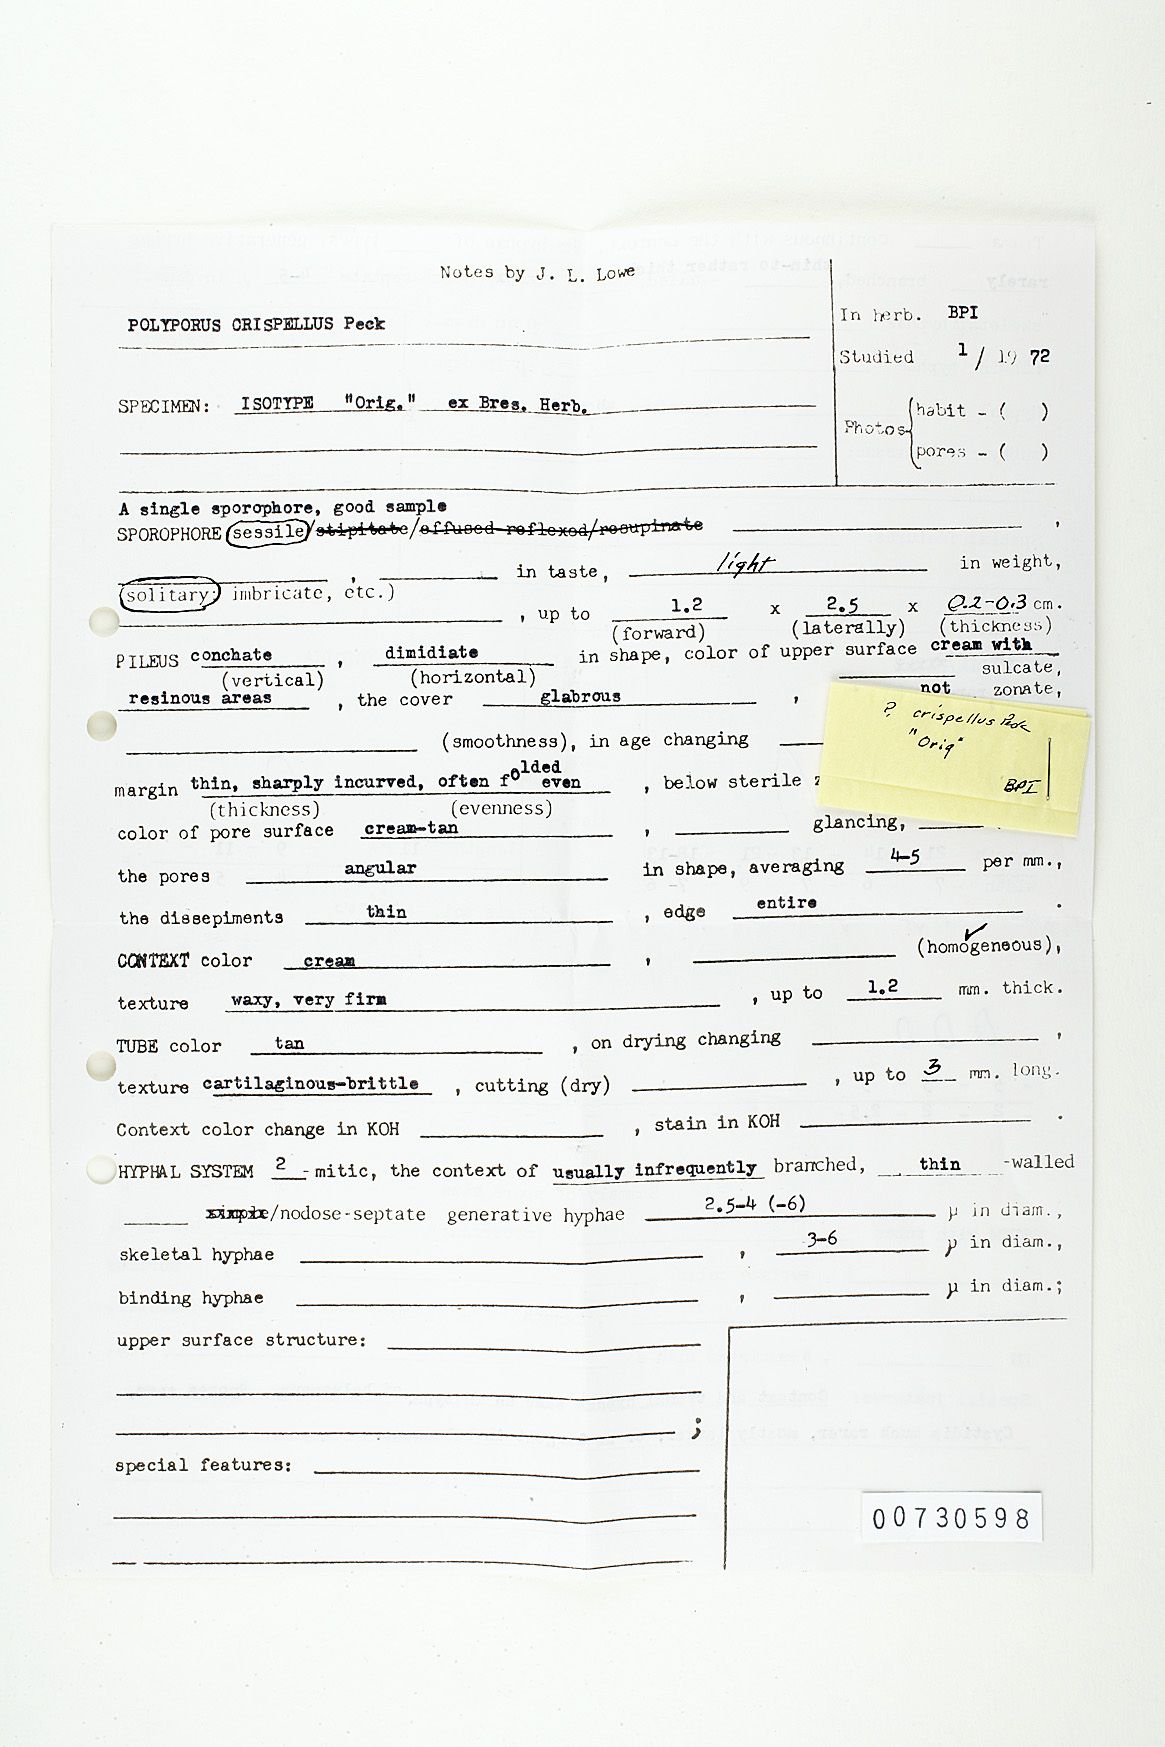 Notes by J. L. Lowe
POLYPORUS CRISPELLUS Peck
In herb. BPI
Studied 1 / 19 72
SPECIMEN: ISOTYPE "Orig." ex Bres. Herb.
Photos
habit - ( )
pores - ( )
A single sporophore, good sample
SPOROPHORE sessile/stipitate/effused-reflexed/resupinate ,
, in taste, light in weight,
(solitary, imbricate, etc.)
, up to 1.2 x 2.5 x 0.2-0.3 cm.
(forward) (laterally) (thickness)
PILEUS conchate , dimidiate in shape, color of upper surface cream with
(vertical) (horizontal) sulcate,
resinous areas , the cover glabrous , not zonate,
? crispellus Peck
"Orig"
BPI
(smoothness), in age changing
margin thin, sharply incurved, often folded even , below sterile
(thickness) (evenness)
color of pore surface cream-tan , glancing,
the pores angular in shape, averaging 4-5 per mm.,
the dissepiments thin , edge entire .
CONTEXT color cream , (homogeneous),
texture waxy, very firm , up to 1.2 mm. thick.
TUBE color tan , on drying changing ,
texture cartilaginous-brittle , cutting (dry) , up to 3 mm. long.
Context color change in KOH , stain in KOH .
HYPHAL SYSTEM 2 -mitic, the context of usually infrequently branched, thin -walled
simple/nodose-septate generative hyphae 2.5-4 (-6) µ in diam.,
skeletal hyphae , 3-6 µ in diam.,
binding hyphae , µ in diam.;
upper surface structure:
;
special features:
00730598